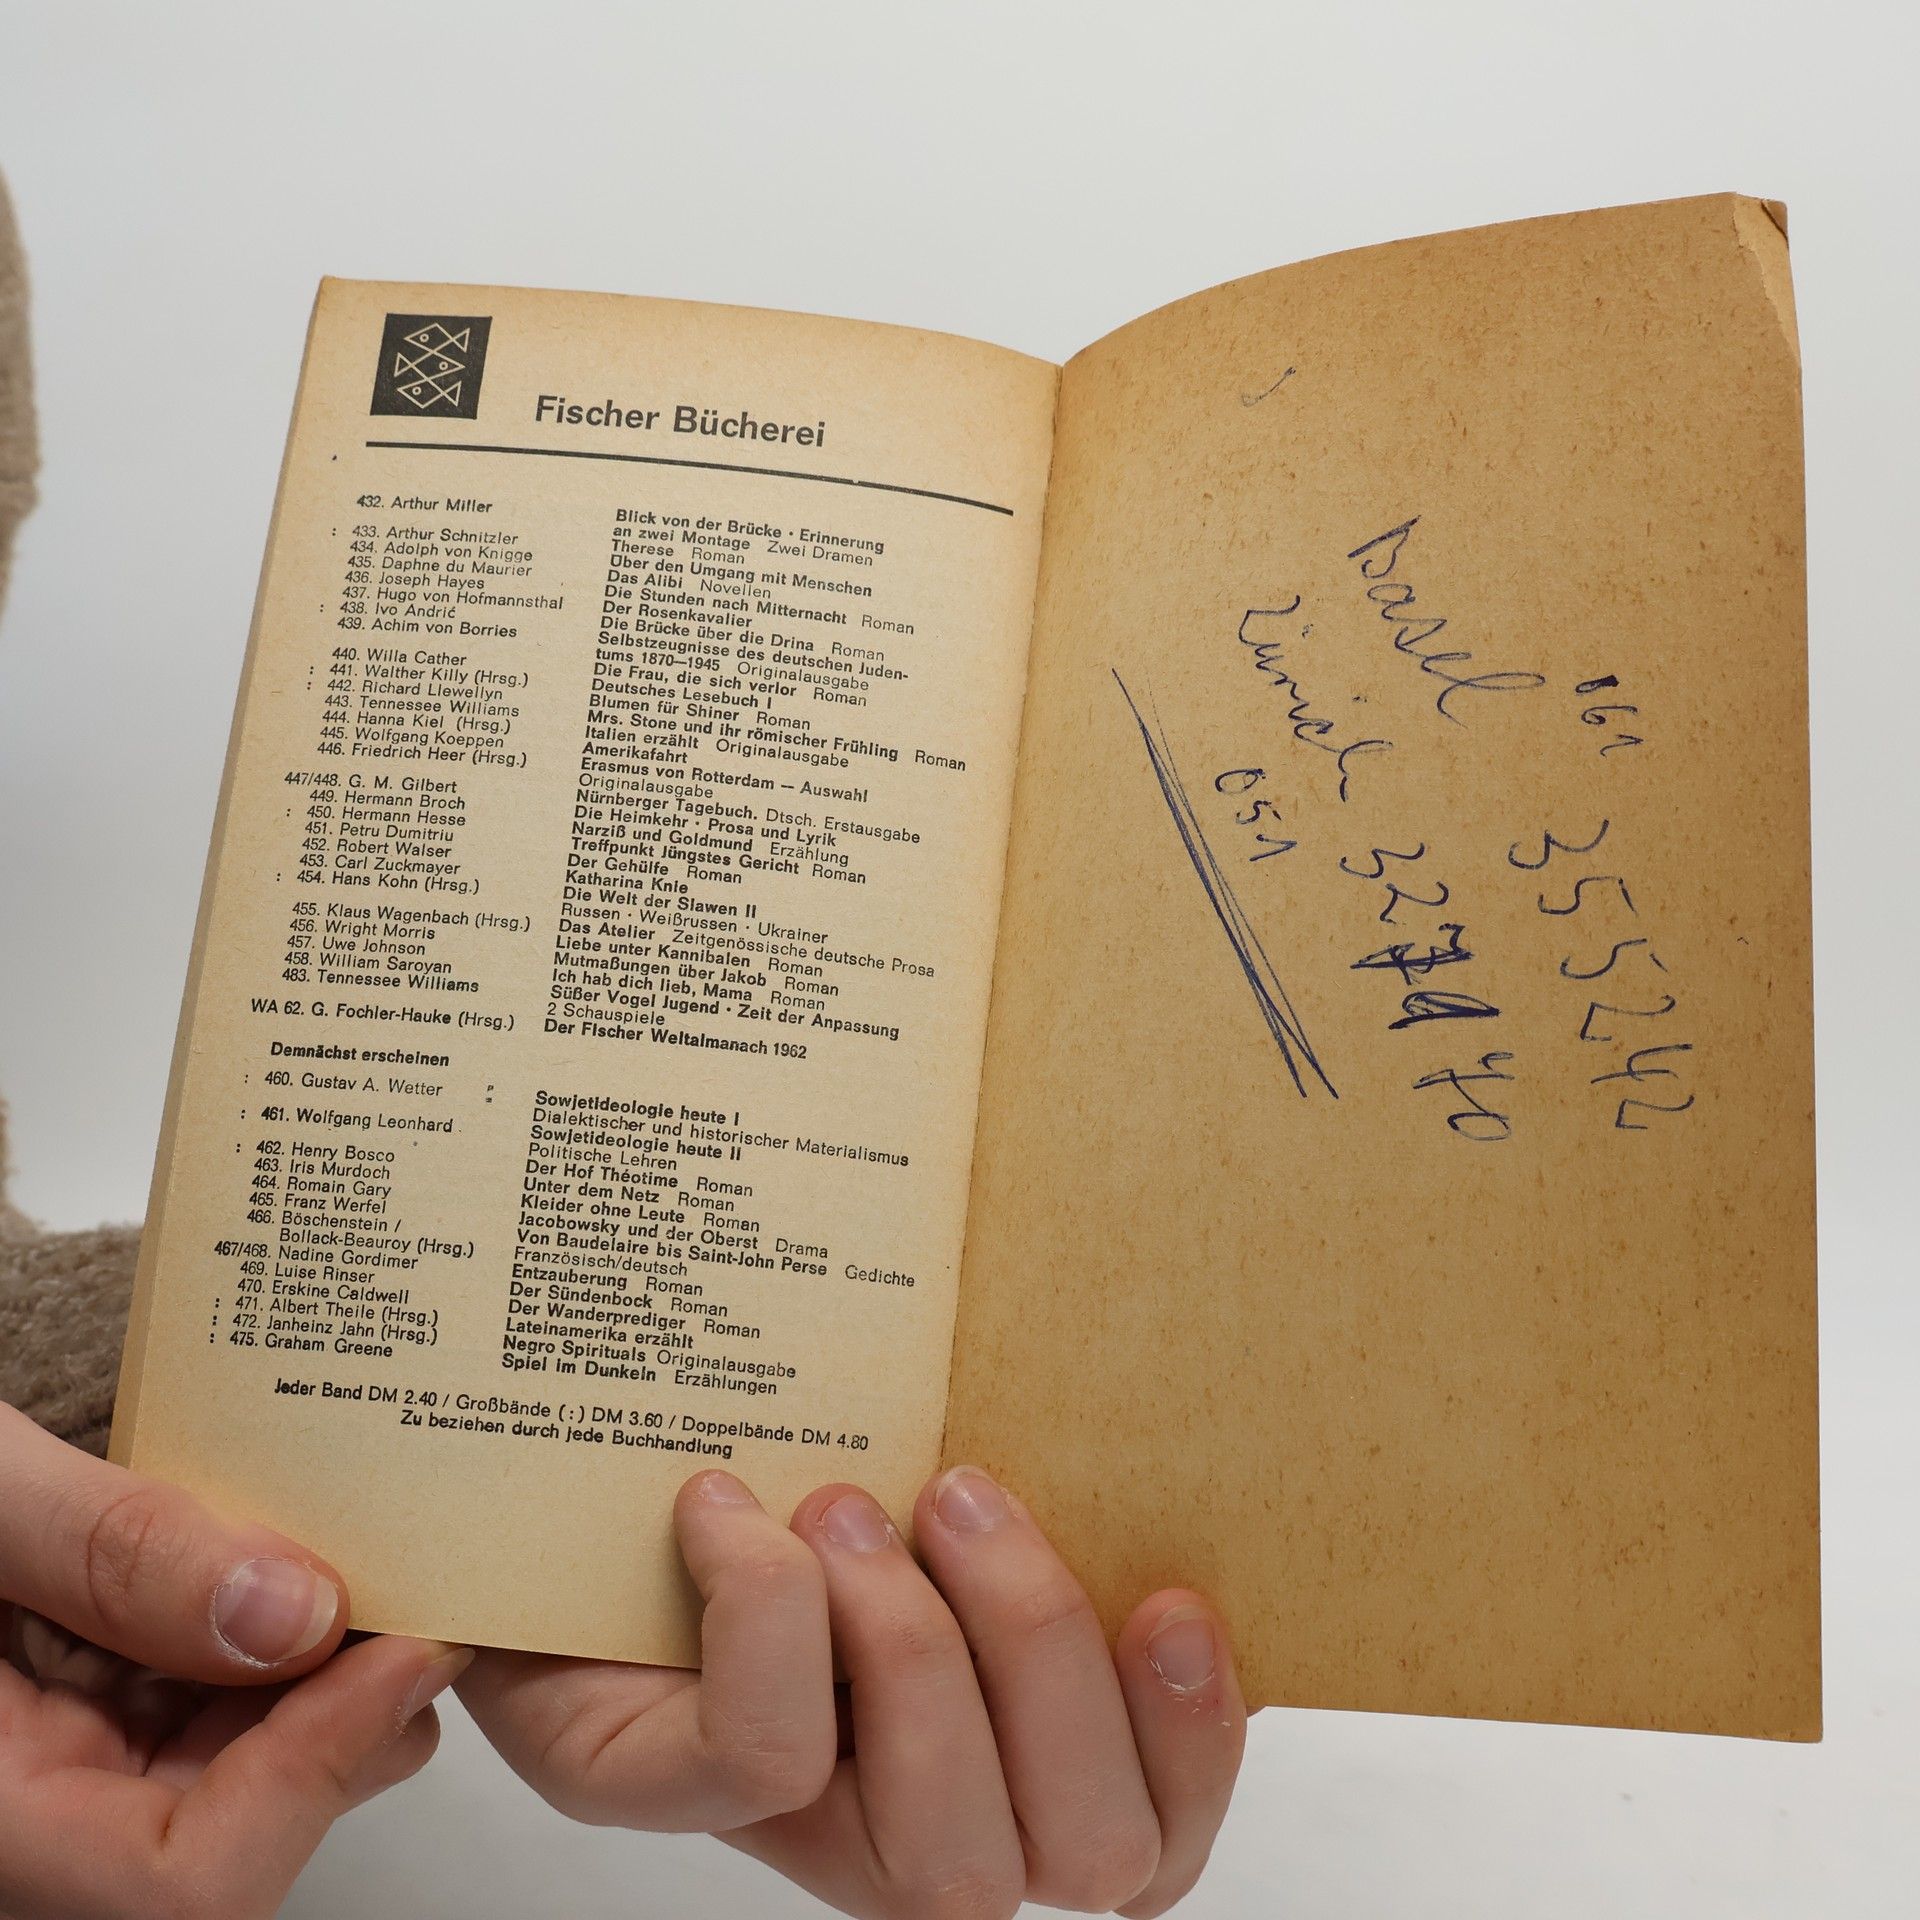 Fischer Bücherei
432. Arthur Miller Blick von der Brücke · Erinnerung
an zwei Montage Zwei Dramen
: 433. Arthur Schnitzler Therese Roman
434. Adolph von Knigge Über den Umgang mit Menschen
435. Daphne du Maurier Das Alibi Novellen
436. Joseph Hayes Die Stunden nach Mitternacht Roman
437. Hugo von Hofmannsthal Der Rosenkavalier
: 438. Ivo Andrić Die Brücke über die Drina Roman
439. Achim von Borries Selbstzeugnisse des deutschen Juden-
tums 1870—1945 Originalausgabe
440. Willa Cather Die Frau, die sich verlor Roman
: 441. Walther Killy (Hrsg.) Deutsches Lesebuch I
: 442. Richard Llewellyn Blumen für Shiner Roman
443. Tennessee Williams Mrs. Stone und ihr römischer Frühling Roman
444. Hanna Kiel (Hrsg.) Italien erzählt Originalausgabe
445. Wolfgang Koeppen Amerikafahrt
446. Friedrich Heer (Hrsg.) Erasmus von Rotterdam — Auswahl
Originalausgabe
447/448. G. M. Gilbert Nürnberger Tagebuch. Dtsch. Erstausgabe
449. Hermann Broch Die Heimkehr · Prosa und Lyrik
: 450. Hermann Hesse Narziß und Goldmund Erzählung
451. Petru Dumitriu Treffpunkt Jüngstes Gericht Roman
452. Robert Walser Der Gehülfe Roman
453. Carl Zuckmayer Katharina Knie
: 454. Hans Kohn (Hrsg.) Die Welt der Slawen II
Russen · Weißrussen · Ukrainer
455. Klaus Wagenbach (Hrsg.) Das Atelier Zeitgenössische deutsche Prosa
456. Wright Morris Liebe unter Kannibalen Roman
457. Uwe Johnson Mutmaßungen über Jakob Roman
458. William Saroyan Ich hab dich lieb, Mama Roman
483. Tennessee Williams Süßer Vogel Jugend · Zeit der Anpassung
2 Schauspiele
WA 62. G. Fochler-Hauke (Hrsg.) Der Fischer Weltalmanach 1962
Demnächst erscheinen
: 460. Gustav A. Wetter Sowjetideologie heute I
Dialektischer und historischer Materialismus
: 461. Wolfgang Leonhard Sowjetideologie heute II
Politische Lehren
: 462. Henry Bosco Der Hof Théotime Roman
463. Iris Murdoch Unter dem Netz Roman
464. Romain Gary Kleider ohne Leute Roman
465. Franz Werfel Jacobowsky und der Oberst Drama
466. Böschenstein / Von Baudelaire bis Saint-John Perse Gedichte
Bollack-Beauroy (Hrsg.) Französisch/deutsch
467/468. Nadine Gordimer Entzauberung Roman
469. Luise Rinser Der Sündenbock Roman
470. Erskine Caldwell Der Wanderprediger Roman
: 471. Albert Theile (Hrsg.) Lateinamerika erzählt
: 472. Janheinz Jahn (Hrsg.) Negro Spirituals Originalausgabe
: 475. Graham Greene Spiel im Dunkeln Erzählungen
Jeder Band DM 2.40 / Großbände (:) DM 3.60 / Doppelbände DM 4.80
Zu beziehen durch jede Buchhandlung
061
Basel 35 52 42
Zürich 32
051